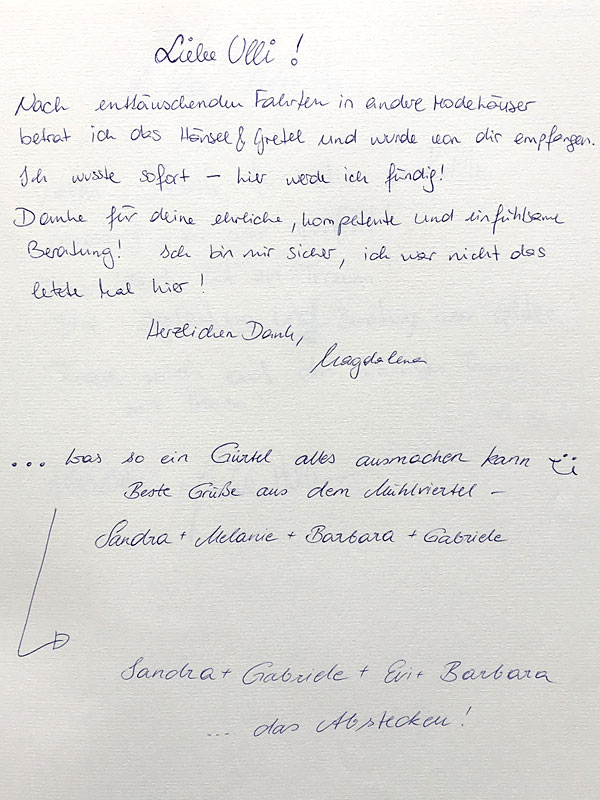 Liebe Ulli !
Nach enttäuschenden Fahrten in andere Modehäuser
betrat ich das Hänsel & Gretel und wurde von dir empfangen.
Ich wusste sofort – hier werde ich fündig!
Danke für deine ehrliche, kompetente und einfühlsame
Beratung! Ich bin mir sicher, ich war nicht das
letzte Mal hier!
Herzlichen Dank,
Magdalena
... Was so ein Gürtel alles ausmachen kann
Beste Grüße aus dem Mühlviertel –
Sandra + Melanie + Barbara + Gabriele
Sandra + Gabriele + Evi + Barbara
... das Abstecken!